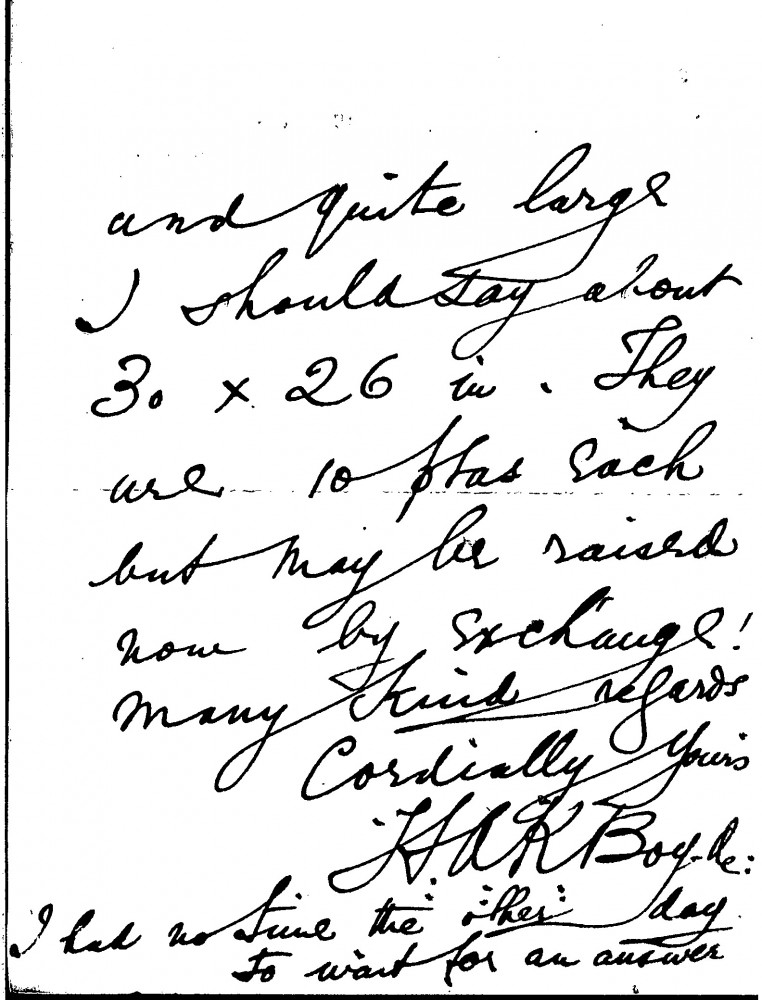 and quite large
I should say about
30 x 26 in. They
are 10 ptas each
but may be raised
now by exchange!
Many kind regards
Cordially Yours
HAK Boy
I had no time the other day
to wait for an answer